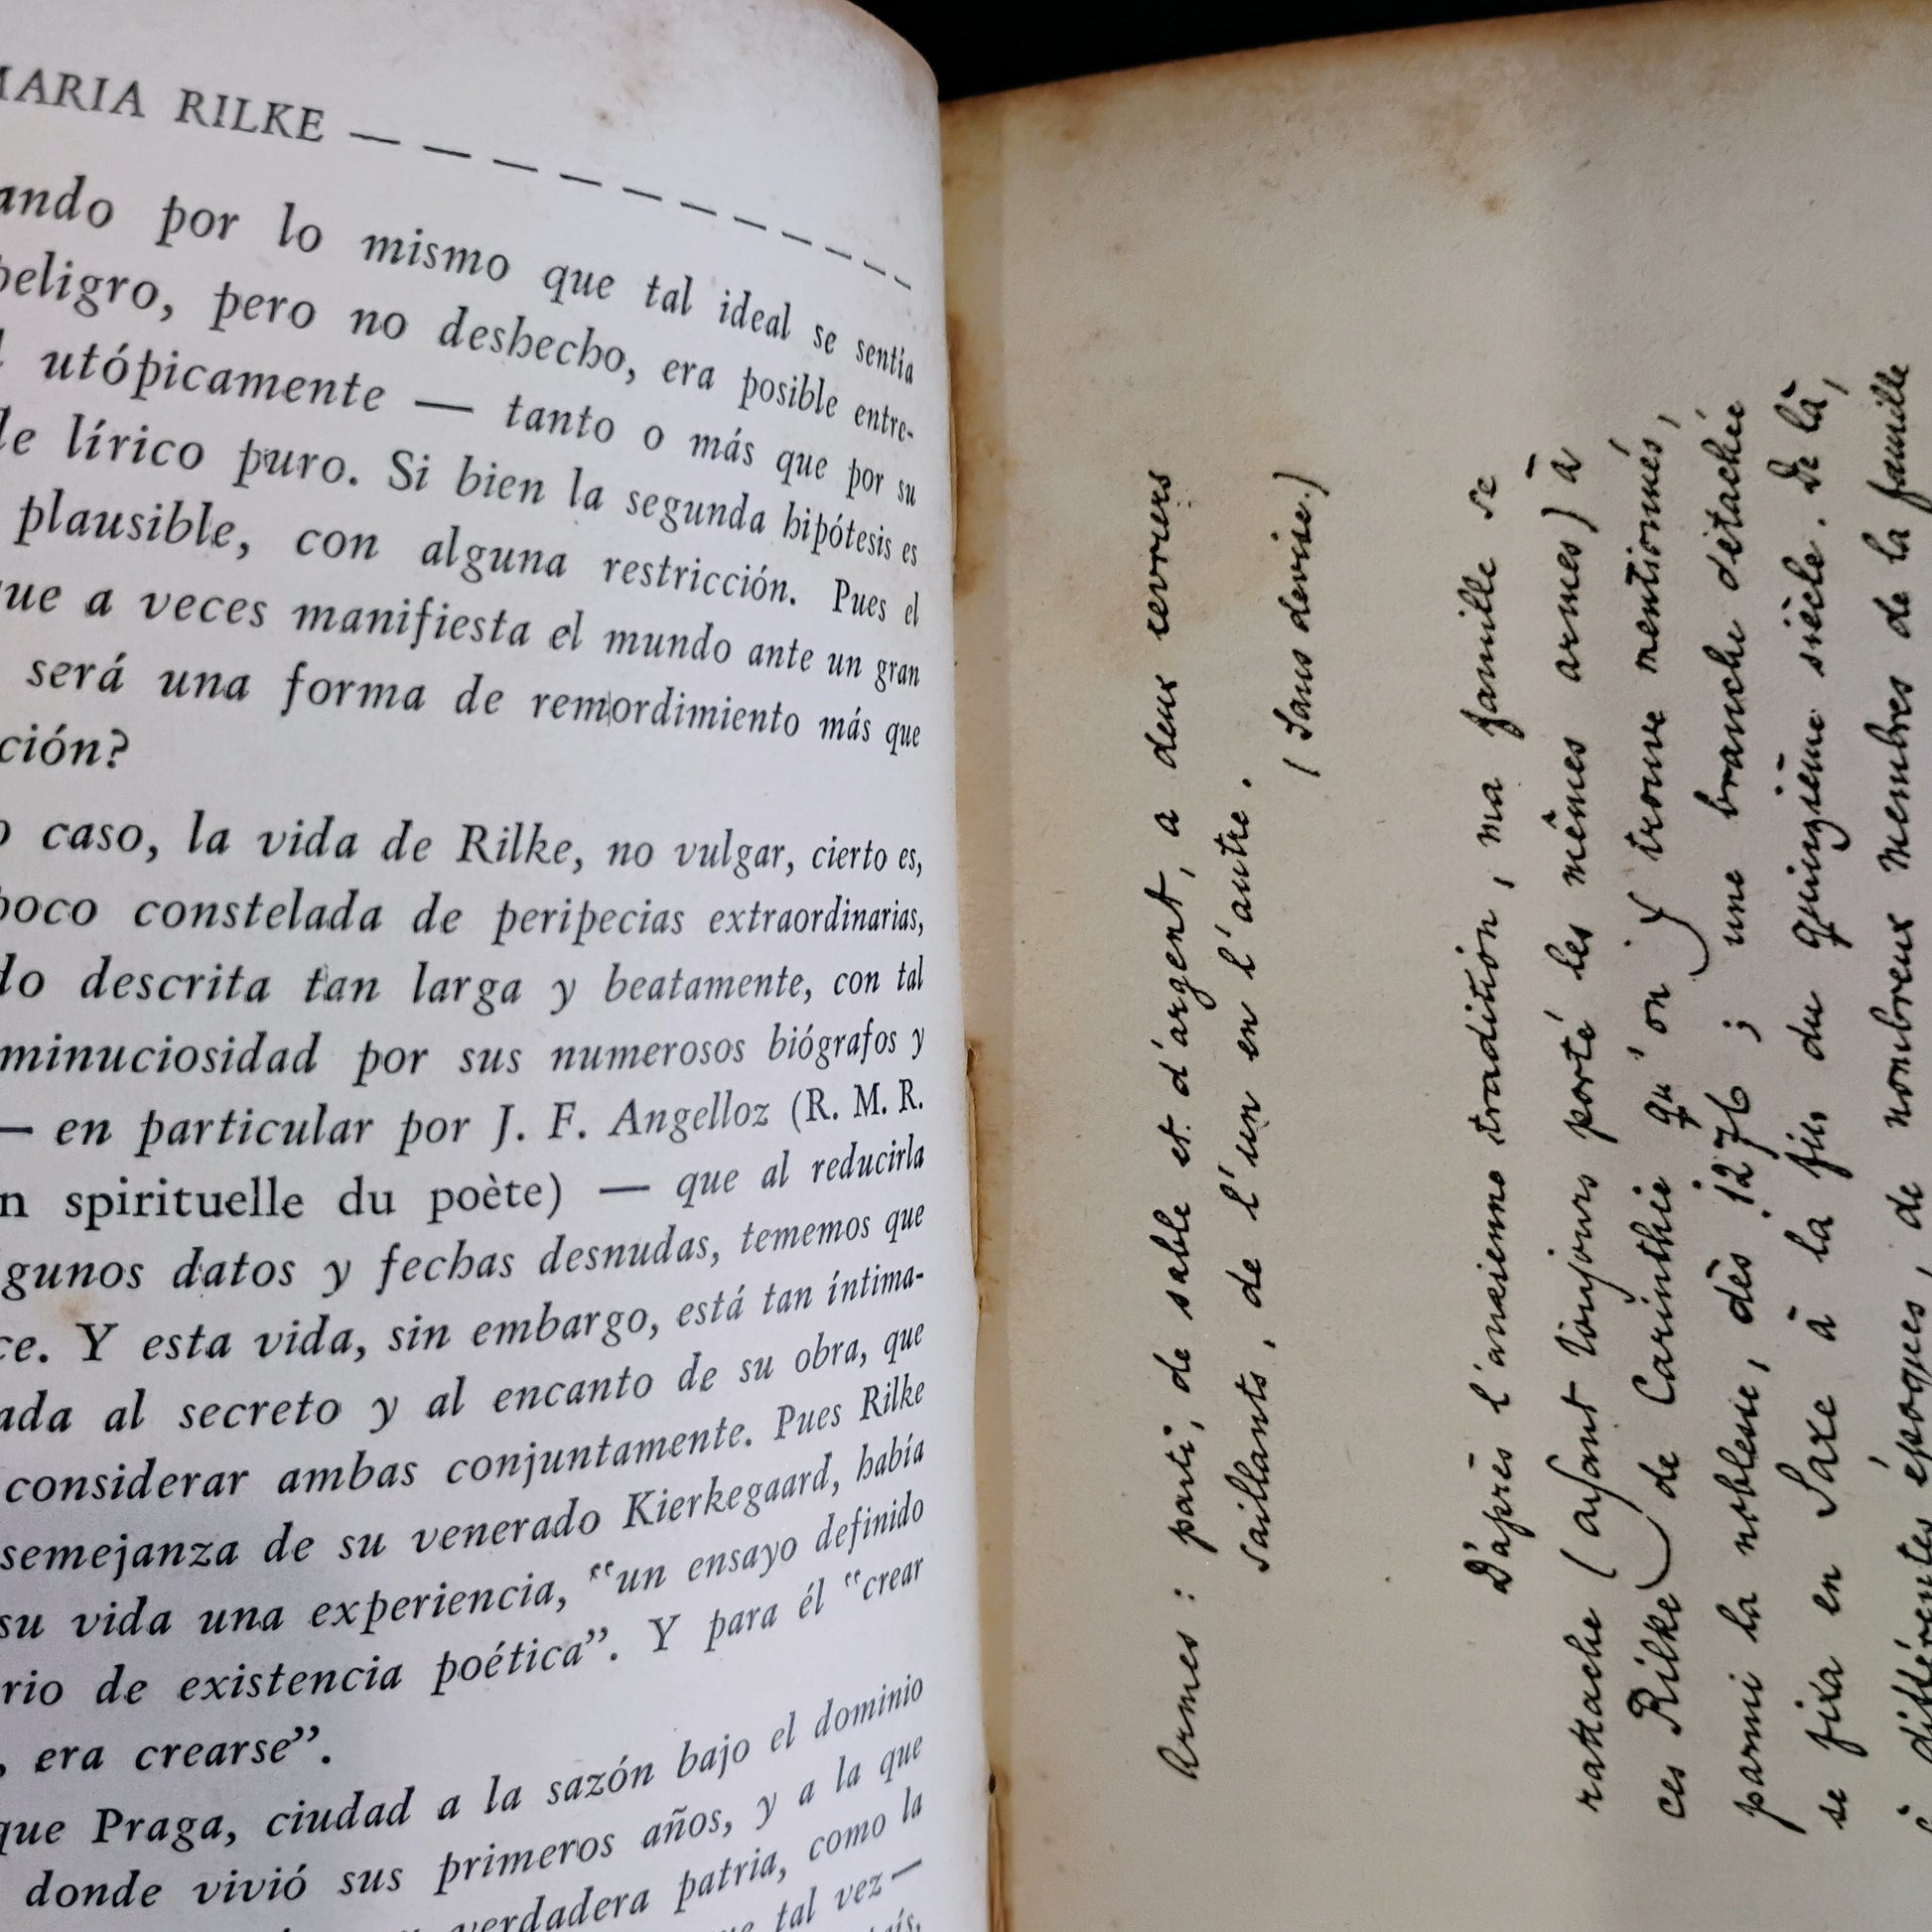 MARIA RILKE — — — — — — — — — —
ando por lo mismo que tal ideal se sentía
peligro, pero no deshecho, era posible entre-
utópicamente — tanto o más que por su
le lírico puro. Si bien la segunda hipótesis es
plausible, con alguna restricción. Pues el
que a veces manifiesta el mundo ante un gran
será una forma de remordimiento más que
ción?
o caso, la vida de Rilke, no vulgar, cierto es,
poco constelada de peripecias extraordinarias,
do descrita tan larga y beatamente, con tal
minuciosidad por sus numerosos biógrafos y
— en particular por J. F. Angelloz (R. M. R.
n spirituelle du poète) — que al reducirla
gunos datos y fechas desnudas, tememos que
ce. Y esta vida, sin embargo, está tan íntima-
ada al secreto y al encanto de su obra, que
considerar ambas conjuntamente. Pues Rilke
semejanza de su venerado Kierkegaard, había
su vida una experiencia, “un ensayo definido
rio de existencia poética”. Y para él “crear
, era crearse”.
que Praga, ciudad a la sazón bajo el dominio
donde vivió sus primeros años, y a la que
verdadera patria, como la
tal vez —
Armes : parti, de sable et d'argent, a deux levriers
saillants, de l'un en l'autre.
(Sans devise.)
D'après l'ancienne tradition, ma famille se
rattache (ayant toujours porté les mêmes armes) à
ces Rilke de Carinthie qu'on y trouve mentionnés,
parmi la noblesse, dès 1276 ; une branche détachée
se fixa en Saxe à la fin du quinzième siècle. De là,
à différentes époques, de nombreux membres de la famille